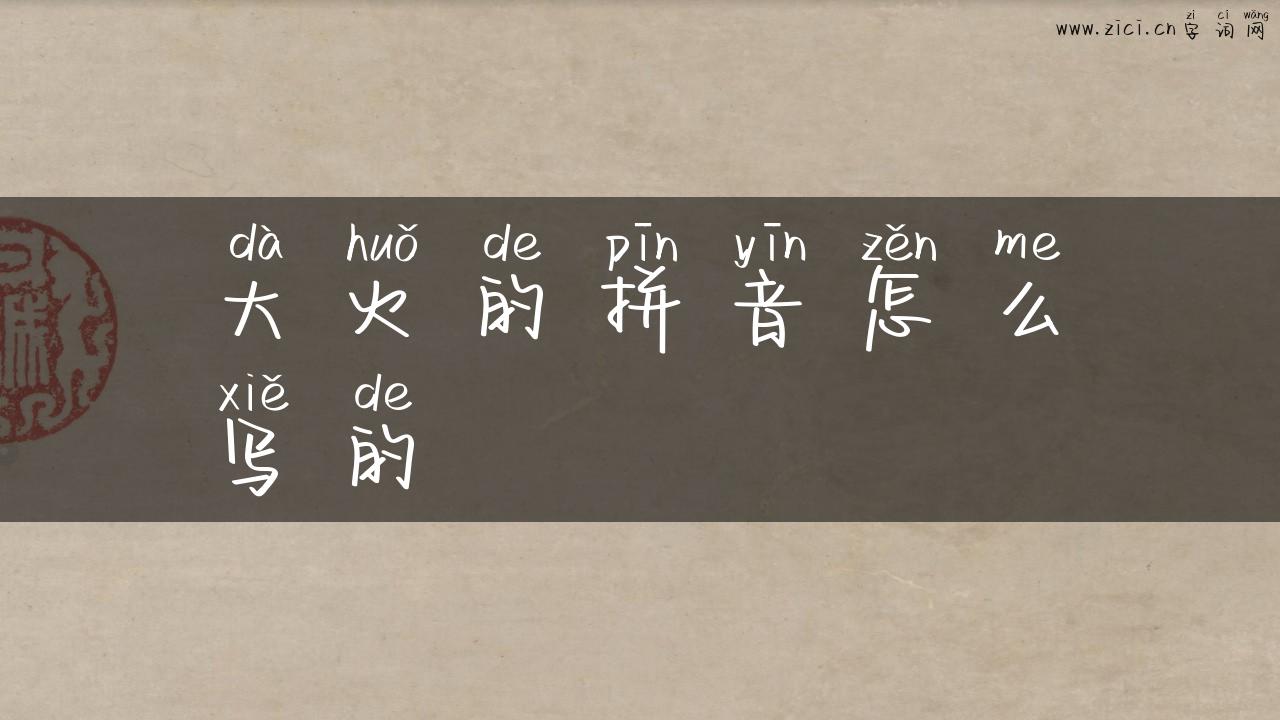 zì cí wǎng
www.zici.cn 字词网
dà huǒ de pīn yīn zěn me
大火的拼音怎么
xiě de
写的